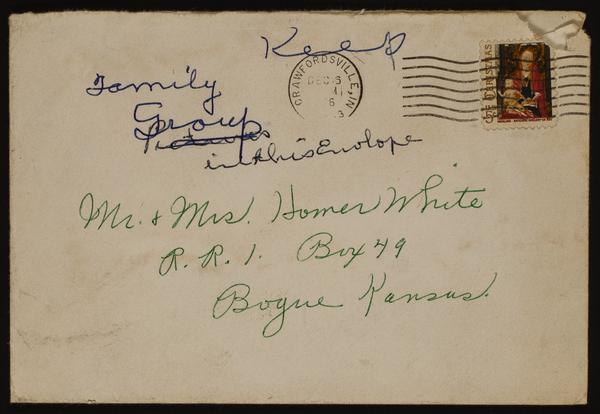 Keep
CRAWFORDSVILLE, IN
DEC 6
Family
Group
Pictures
in this Envolope
CHRISTMAS
Mr. & Mrs. Homer White
R. R. 1. Box 49
Bogue Kansas.